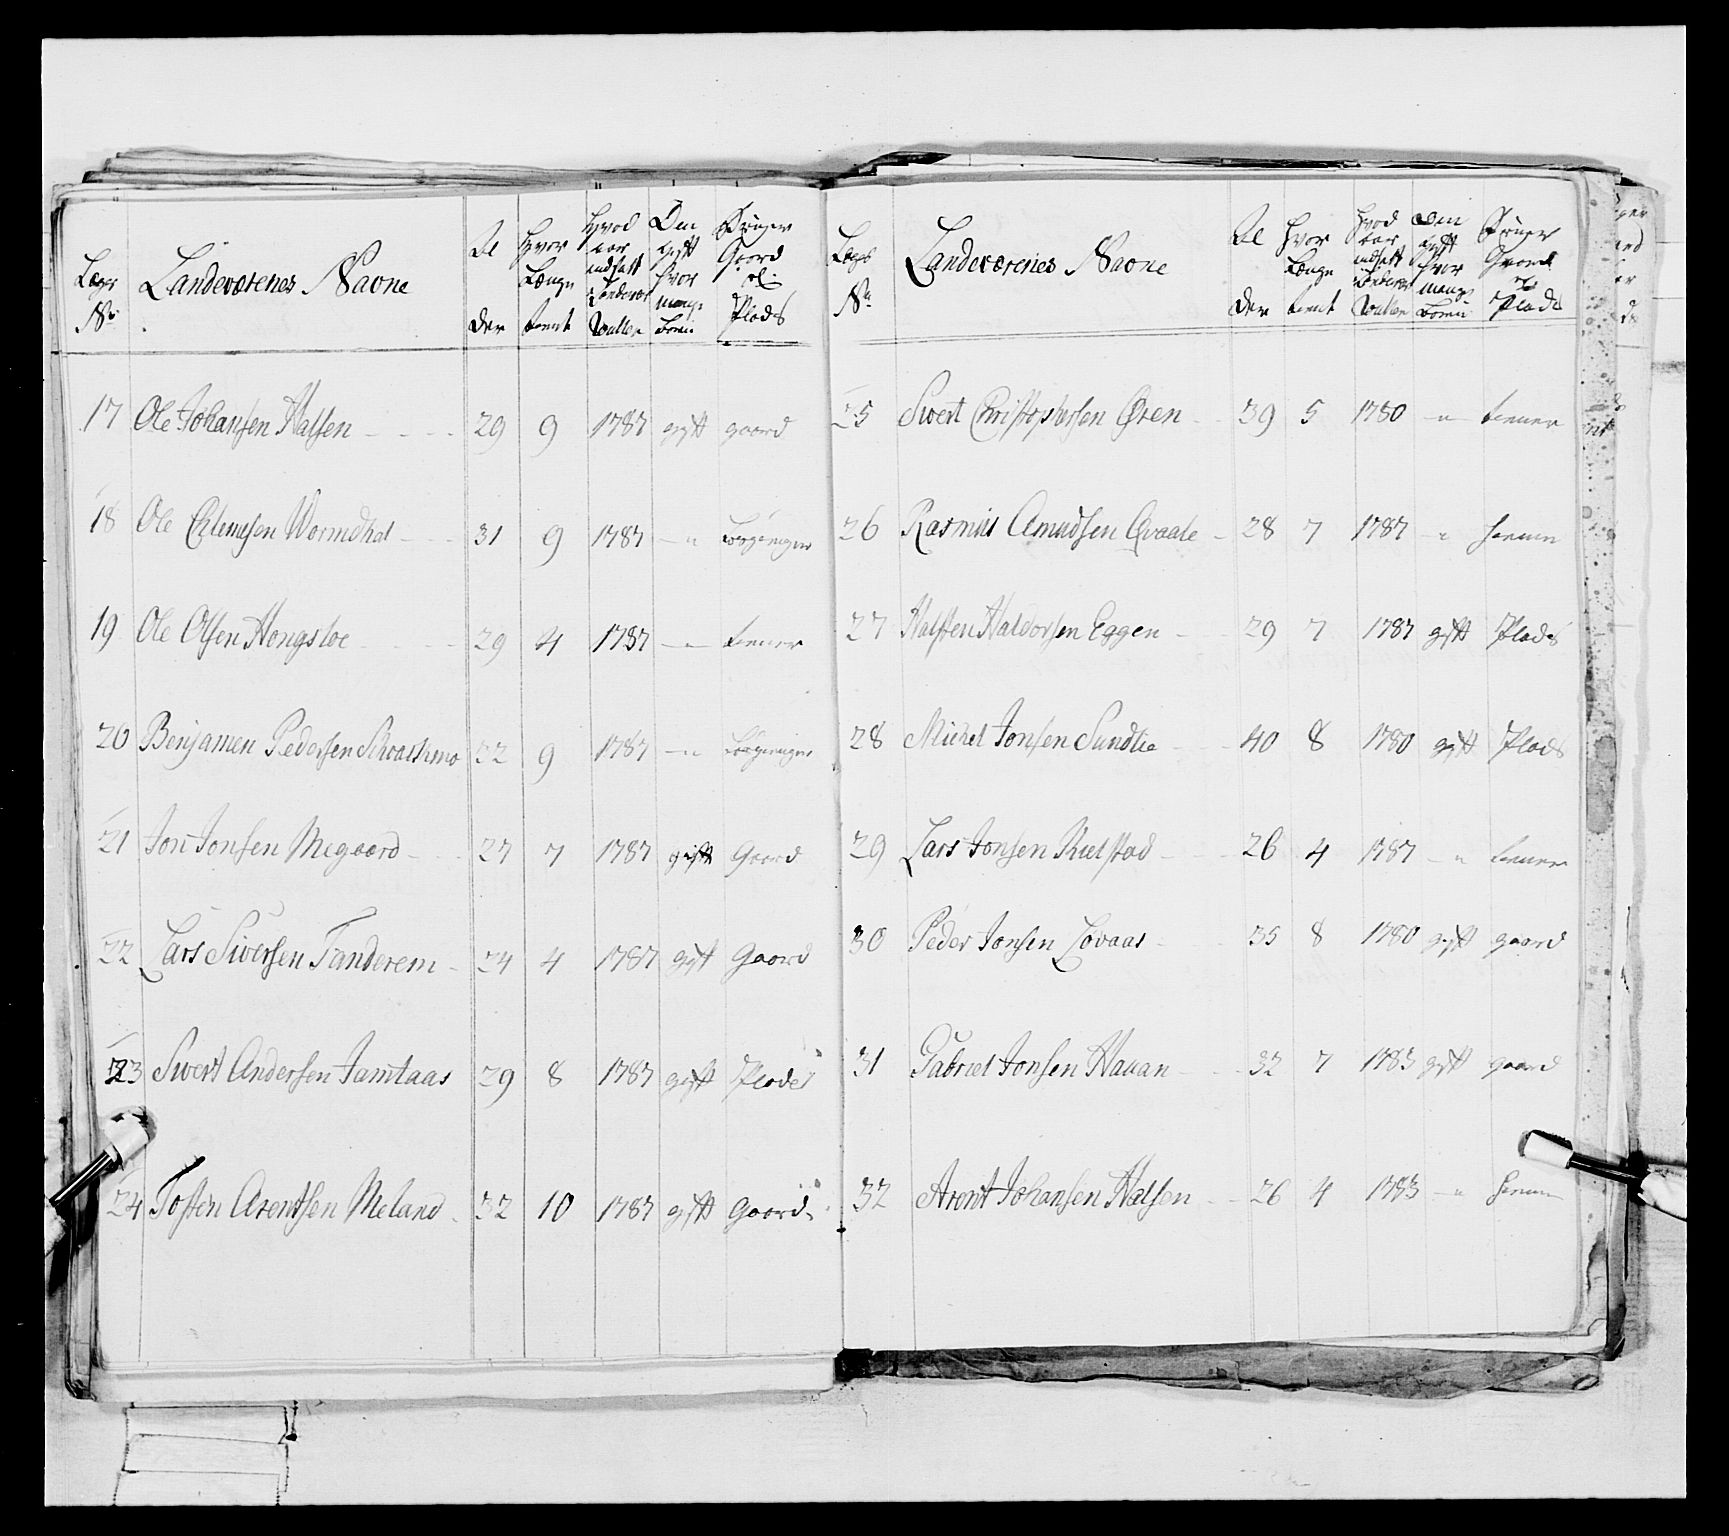 Lægs No
Landeværenes Navne
Al der
Hvor Længe tient
Hvad aar indsatt Landeværs Rullen
Om gift hvor mange Børn
Bruger Gaard el: Plads
17 Ole Johansen Halsen 29 9 1787 gift gaard
18 Ole Wormdhal 31 9 1787 — "
19 Ole Olsen Hongsloe 29 4 1787 — tiener
20 Benjamen Pedersen 22 9 1787 — "
21 Jon Jonsen Megaard 27 7 1787 gift Gaard
22 Lars Siversen Tanderem 24 4 1787 gift Gaard
23 Sivert Andersen Jamtaas 29 8 1787 gift Plads
24 Tosten Arentsen Meland 32 10 1787 gift Gaard
Lægs No
Landeværenes Navne
Al der
Hvor Længe tient
Hvad aar indsatt Landeværs Rullen
Om gift hvor mange Børn
Bruger Gaard el Plads
25 Sivert Christophersen Øren 39 5 1780 — " tiener
26 Rasmus Amudsen Qvaale 28 7 1787 — " hiemme
27 Halsten Haldorsen Eggen 29 7 1787 gift Plads
28 Michel Jonsen Sundlie 40 8 1780 gift Plads
29 Lars Jonsen Kielstad 26 4 1787 — " tiener
30 Peder Jonsen Lovaas 35 8 1780 gift gaard
31 Gabriel Jonsen Hauan 32 7 1783 gift gaard
32 Arent Johansen Halsen 26 4 1783 — " hiemme